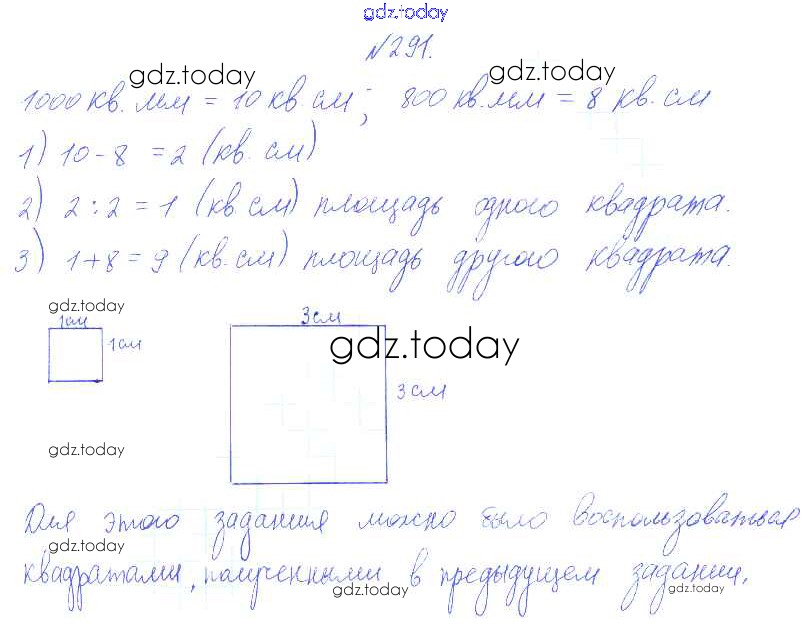 gdz.today
№291.
gdz.today gdz.today
1000 кв. мм = 10 кв см; 800 кв. мм = 8 кв. см
1) 10-8 = 2 (кв. см)
2) 2:2 = 1 (кв см) площадь одного квадрата.
3) 1+8 = 9 (кв. см) площадь другого квадрата.
gdz.today
1см 3см
1см gdz.today
3см
gdz.today
Для этого задания можно было воспользоваться
gdz.today gdz.today
квадратами, полученными в предыдущем задании.
gdz.today gdz.today